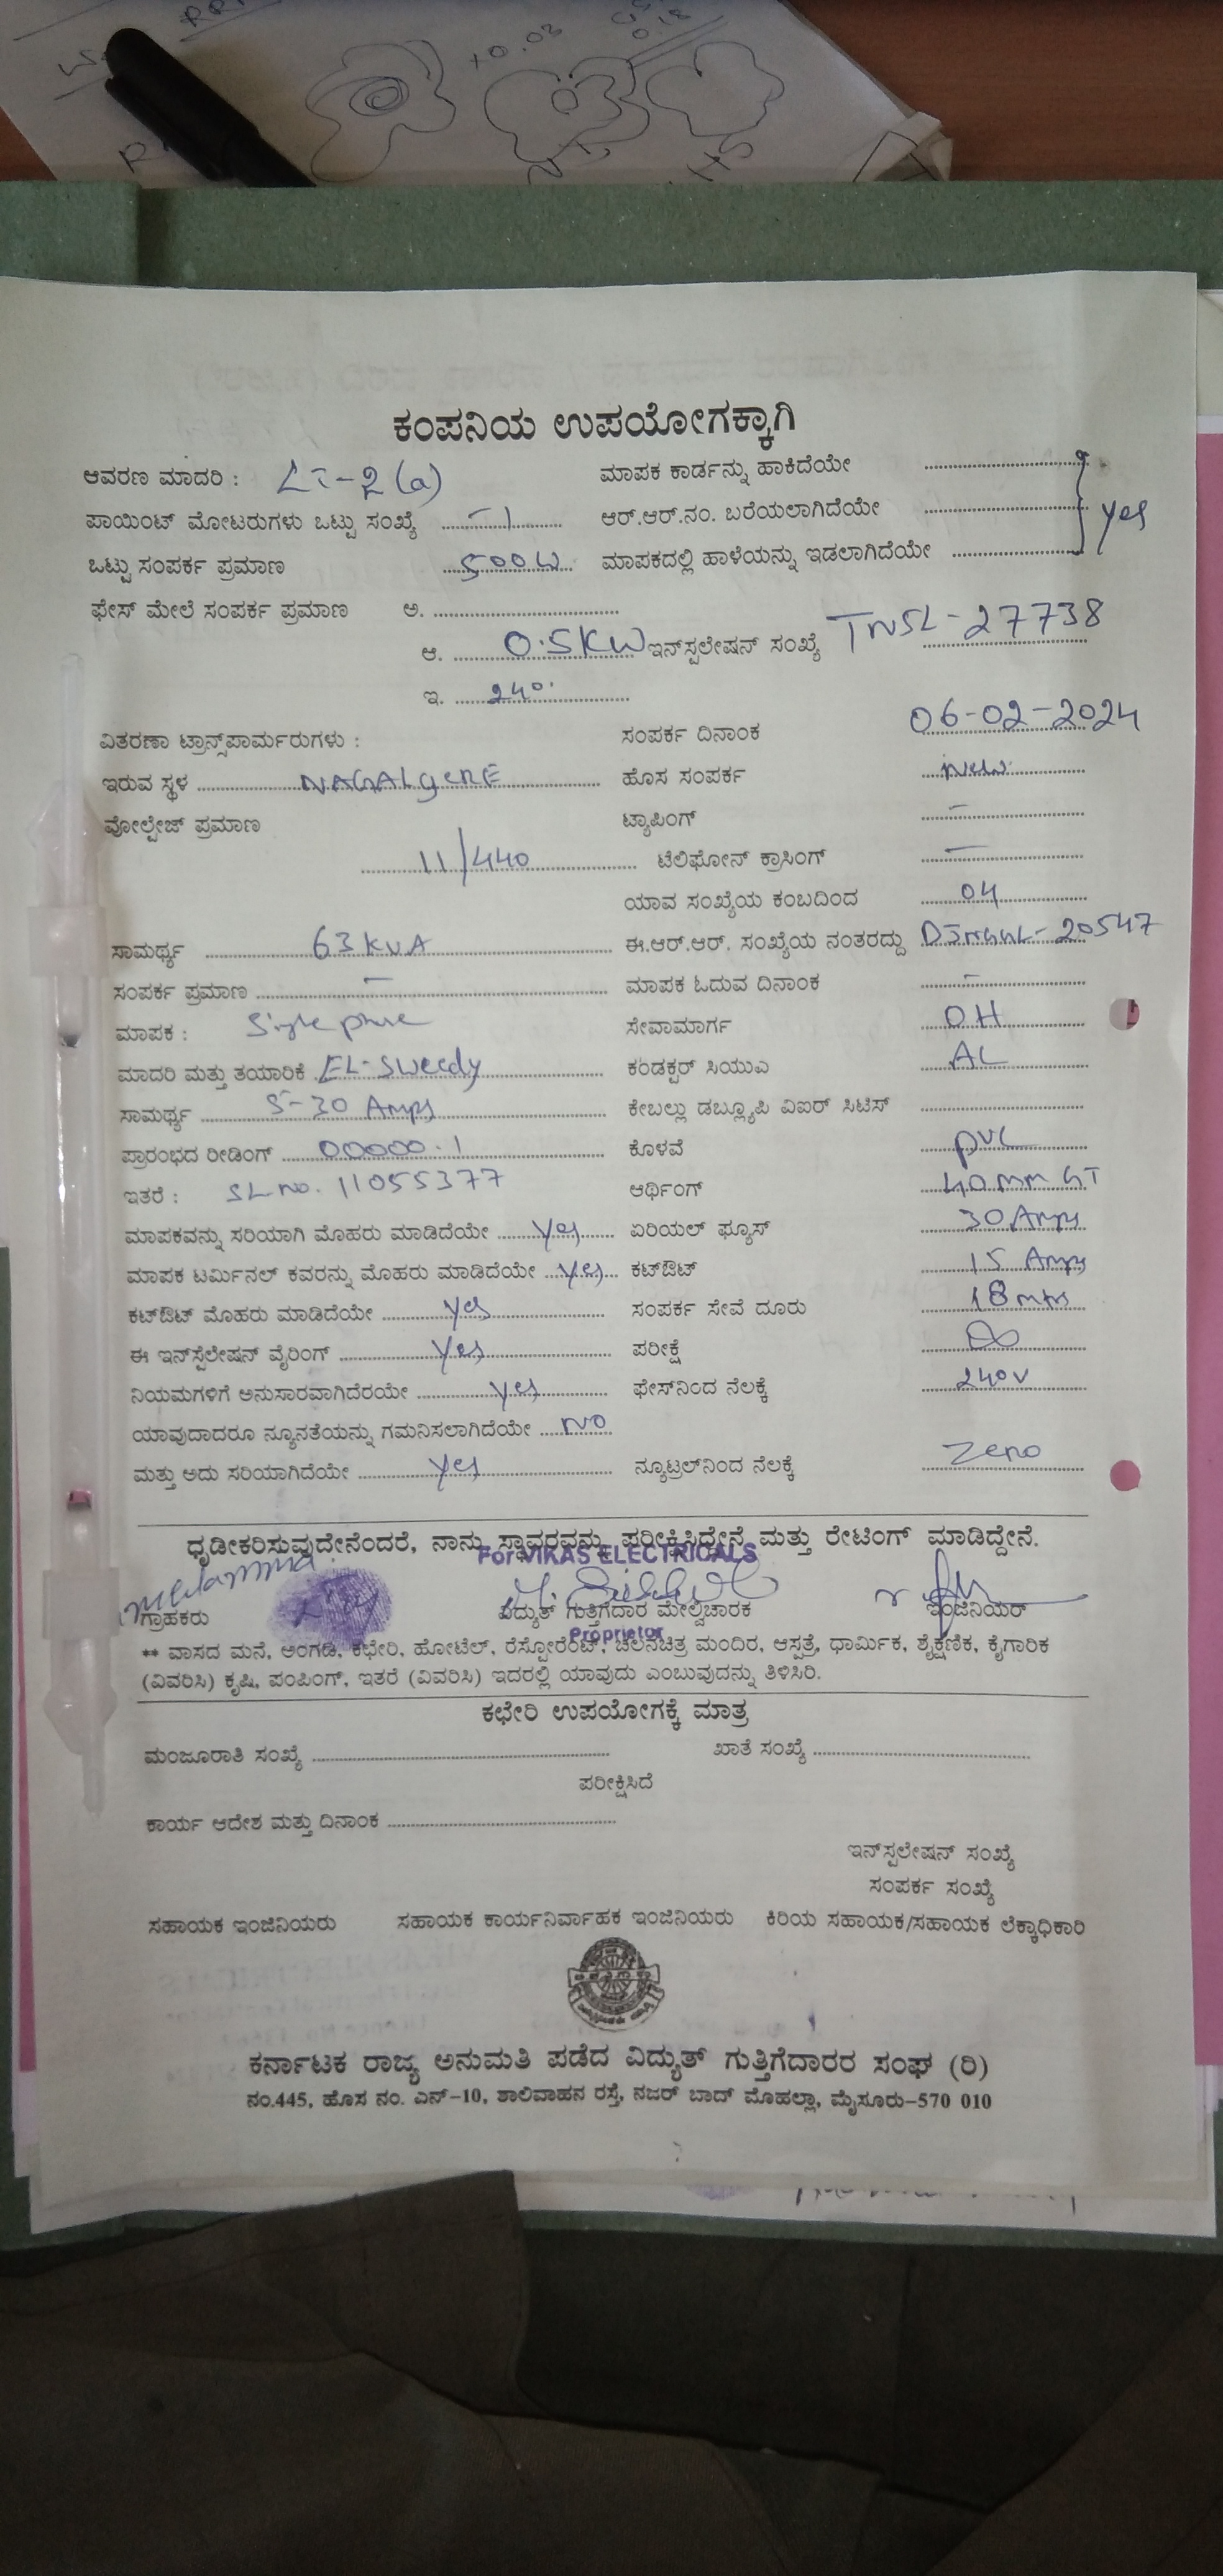 +0.03
ಕಂಪನಿಯ ಉಪಯೋಗಕ್ಕಾಗಿ
ಆವರಣ ಮಾದರಿ : LT-2(a) ಮಾಪಕ ಕಾರ್ಡನ್ನು ಹಾಕಿದೆಯೇ
ಪಾಯಿಂಟ್ ಮೋಟರುಗಳು ಒಟ್ಟು ಸಂಖ್ಯೆ -1 ಆರ್.ಆರ್.ನಂ. ಬರೆಯಲಾಗಿದೆಯೇ yes
ಒಟ್ಟು ಸಂಪರ್ಕ ಪ್ರಮಾಣ 500W ಮಾಪಕದಲ್ಲಿ ಹಾಳೆಯನ್ನು ಇಡಲಾಗಿದೆಯೇ
ಫೇಸ್ ಮೇಲೆ ಸಂಪರ್ಕ ಪ್ರಮಾಣ ಅ.
ಆ. 0.5KW ಇನ್‌ಸ್ಪಲೇಷನ್ ಸಂಖ್ಯೆ TNSL-27738
ಇ. 240
ವಿತರಣಾ ಟ್ರಾನ್ಸ್‌ಪಾರ್ಮರುಗಳು : ಸಂಪರ್ಕ ದಿನಾಂಕ 06-02-2024
ಇರುವ ಸ್ಥಳ NAGALgERE ಹೊಸ ಸಂಪರ್ಕ New
ವೋಲ್ಟೇಜ್ ಪ್ರಮಾಣ ಟ್ಯಾಪಿಂಗ್ -
11/440 ಟೆಲಿಫೋನ್ ಕ್ರಾಸಿಂಗ್ -
ಯಾವ ಸಂಖ್ಯೆಯ ಕಂಬದಿಂದ 04
ಸಾಮರ್ಥ್ಯ 63 KVA ಈ.ಆರ್.ಆರ್. ಸಂಖ್ಯೆಯ ನಂತರದ್ದು 20547
ಸಂಪರ್ಕ ಪ್ರಮಾಣ - ಮಾಪಕ ಓದುವ ದಿನಾಂಕ -
ಮಾಪಕ : Single phase ಸೇವಾಮಾರ್ಗ OH
ಮಾದರಿ ಮತ್ತು ತಯಾರಿಕೆ EL-Sweedy ಕಂಡಕ್ಟರ್ ಸಿಯುಎ AL
ಸಾಮರ್ಥ್ಯ 5-30 Amps ಕೇಬಲ್ಲು ಡಬ್ಲ್ಯೂಪಿ ವಿಐರ್ ಸಿಟಿಸ್
ಪ್ರಾರಂಭದ ರೀಡಿಂಗ್ 00000.1 ಕೊಳವೆ PVC
ಇತರೆ : SL no. 11055377 ಆರ್ಥಿಂಗ್ 40mm GI
ಮಾಪಕವನ್ನು ಸರಿಯಾಗಿ ಮೊಹರು ಮಾಡಿದೆಯೇ yes ಏರಿಯಲ್ ಫ್ಯೂಸ್ 30 Amps
ಮಾಪಕ ಟರ್ಮಿನಲ್ ಕವರನ್ನು ಮೊಹರು ಮಾಡಿದೆಯೇ yes ಕಟ್‌ಔಟ್ 15 Amps
ಕಟ್‌ಔಟ್ ಮೊಹರು ಮಾಡಿದೆಯೇ yes ಸಂಪರ್ಕ ಸೇವೆ ದೂರು 18 mts
ಈ ಇನ್‌ಸ್ಪೆಲೇಷನ್ ವೈರಿಂಗ್ yes ಪರೀಕ್ಷೆ ∞
ನಿಯಮಗಳಿಗೆ ಅನುಸಾರವಾಗಿದೆರಯೇ yes ಫೇಸ್‌ನಿಂದ ನೆಲಕ್ಕೆ 240V
ಯಾವುದಾದರೂ ನ್ಯೂನತೆಯನ್ನು ಗಮನಿಸಲಾಗಿದೆಯೇ NO
ಮತ್ತು ಅದು ಸರಿಯಾಗಿದೆಯೇ yes ನ್ಯೂಟ್ರಲ್‌ನಿಂದ ನೆಲಕ್ಕೆ Zero
ಧೃಡೀಕರಿಸುವುದೇನೆಂದರೆ, ನಾನು ಸ್ಥಾವರವನ್ನು ಪರೀಕ್ಷಿಸಿದ್ದೇನೆ ಮತ್ತು ರೇಟಿಂಗ್ ಮಾಡಿದ್ದೇನೆ.
For VIKAS ELECTRICALS
ಗ್ರಾಹಕರು ವಿದ್ಯುತ್ ಗುತ್ತಿಗೆದಾರ ಮೇಲ್ವಿಚಾರಕ ಇಂಜಿನಿಯರ್
Proprietor
** ವಾಸದ ಮನೆ, ಅಂಗಡಿ, ಕಛೇರಿ, ಹೋಟೆಲ್, ರೆಸ್ಟೋರೆಂಟ್, ಚಲನಚಿತ್ರ ಮಂದಿರ, ಆಸ್ಪತ್ರೆ, ಧಾರ್ಮಿಕ, ಶೈಕ್ಷಣಿಕ, ಕೈಗಾರಿಕ
(ವಿವರಿಸಿ) ಕೃಷಿ, ಪಂಪಿಂಗ್, ಇತರೆ (ವಿವರಿಸಿ) ಇದರಲ್ಲಿ ಯಾವುದು ಎಂಬುವುದನ್ನು ತಿಳಿಸಿರಿ.
ಕಛೇರಿ ಉಪಯೋಗಕ್ಕೆ ಮಾತ್ರ
ಮಂಜೂರಾತಿ ಸಂಖ್ಯೆ ಖಾತೆ ಸಂಖ್ಯೆ
ಪರೀಕ್ಷಿಸಿದೆ
ಕಾರ್ಯ ಆದೇಶ ಮತ್ತು ದಿನಾಂಕ
ಇನ್‌ಸ್ಪಲೇಷನ್ ಸಂಖ್ಯೆ
ಸಂಪರ್ಕ ಸಂಖ್ಯೆ
ಸಹಾಯಕ ಇಂಜಿನಿಯರು ಸಹಾಯಕ ಕಾರ್ಯನಿರ್ವಾಹಕ ಇಂಜಿನಿಯರು ಕಿರಿಯ ಸಹಾಯಕ/ಸಹಾಯಕ ಲೆಕ್ಕಾಧಿಕಾರಿ
ಕರ್ನಾಟಕ ರಾಜ್ಯ ಅನುಮತಿ ಪಡೆದ ವಿದ್ಯುತ್ ಗುತ್ತಿಗೆದಾರರ ಸಂಘ (ರಿ)
ನಂ.445, ಹೊಸ ನಂ. ಎನ್-10, ಶಾಲಿವಾಹನ ರಸ್ತೆ, ನಜರ್ ಬಾದ್ ಮೊಹಲ್ಲಾ, ಮೈಸೂರು-570 010